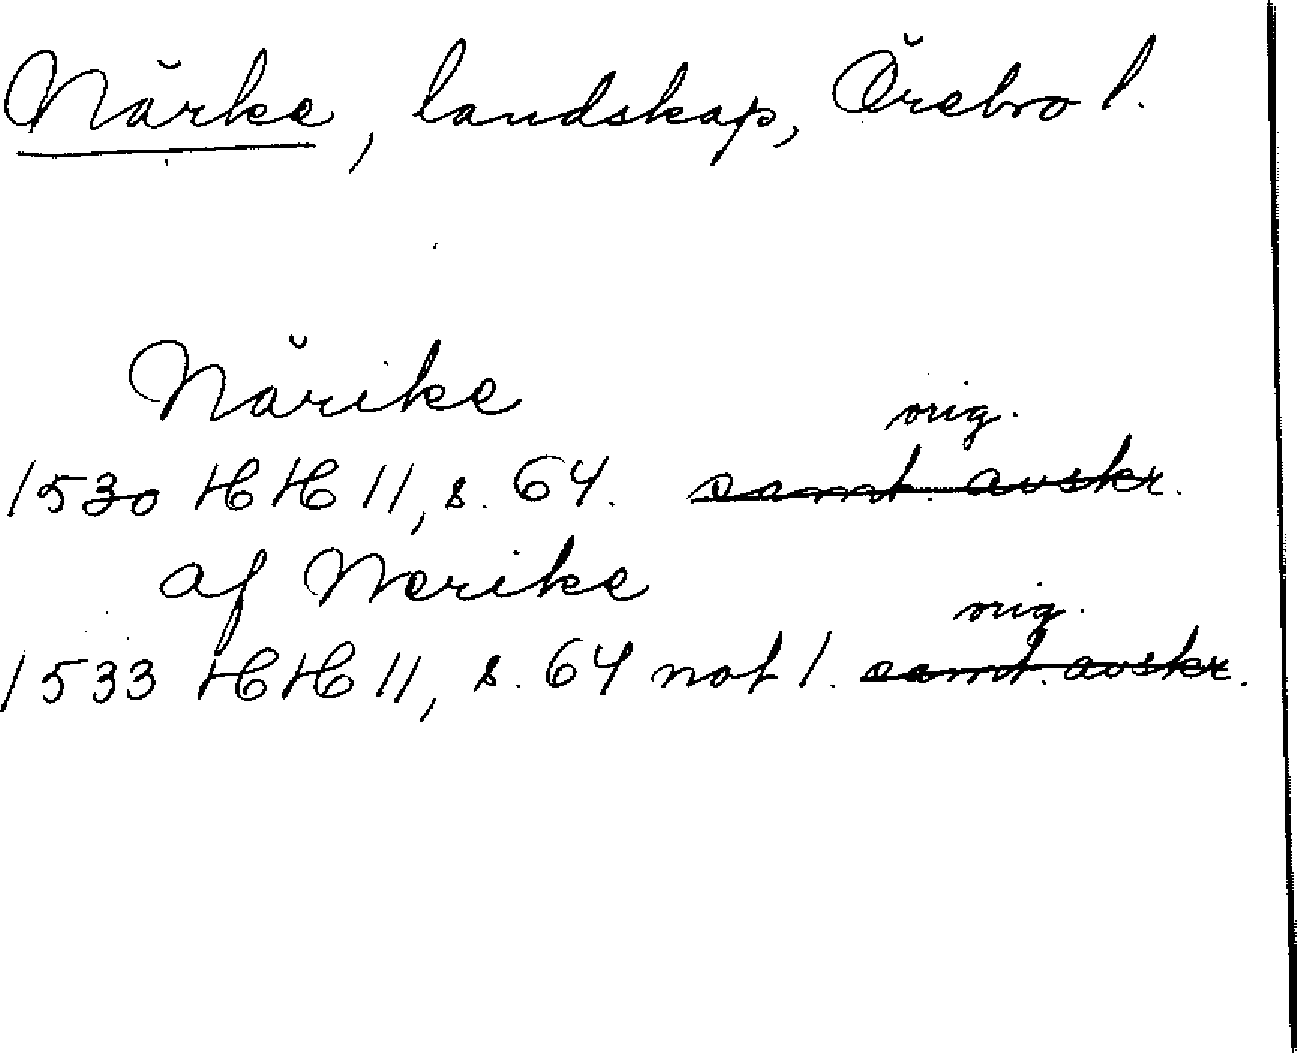 Närke, landskap, Örebro l.
Närike
orig.
1530 HH 11, s. 64. samt. avskr.
af Nerike
orig.
1533 HH 11, s. 64 not 1. samt. avskr.